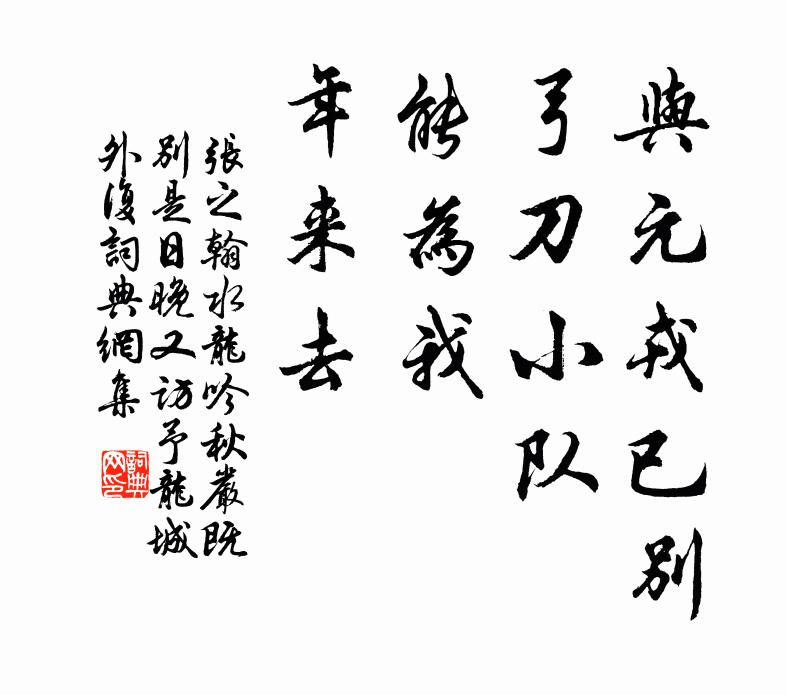 與元戎已别
弓刀小队
能為我
年来去
張之翰水龍吟秋嚴既
別是日晚又訪予龍城
外復詞典網集
詞典网印